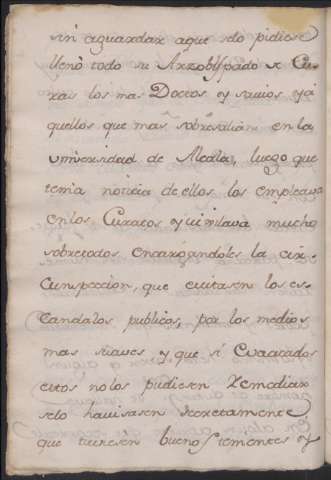 sin aguardar a que selo pidiese
llenò todo su Arzobispado de Cu-
ras los mas Doctos y savios ya
quellos que mas sobresalian en la
universidad de Alcala, luego que
tenia noticia de ellos los empleava
en los Curatos y vijilava mucho
sobre todos encargandoles la cir-
cunspeccion, que evitasen los es-
candalos publicos, por los medios
mas suaves y que si
estos no los pudiesen remediar
selo havisasen secretamente
que tuviesen buenos temientes y